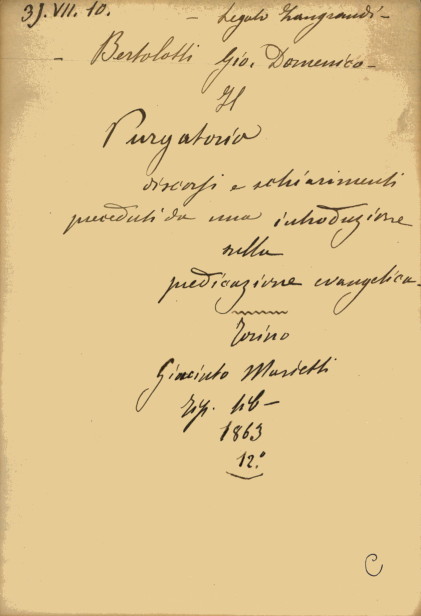 3J. VII. 10. - Legato Zangrandi -
- Bertolotti Gio. Domenico -
Il
Purgatorio
discorsi e schiarimenti
preceduti da una introduzione
sulla
predicazione evangelica -
Torino
Giacinto Marietti
tip. lib -
1863
12.°
C